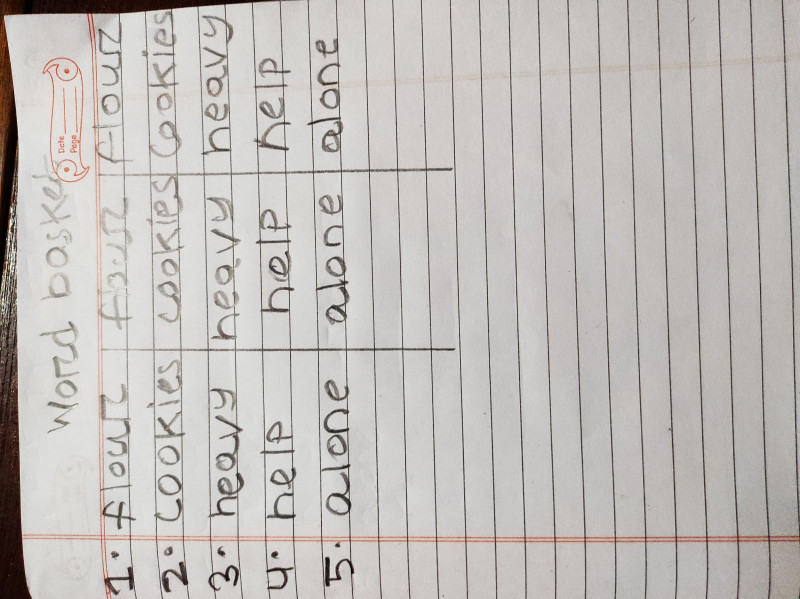 Word basket
Date
Page
1. flour flour flour
2. cookies cookies cookies
3. heavy heavy heavy
4. help help help
5. alone alone alone